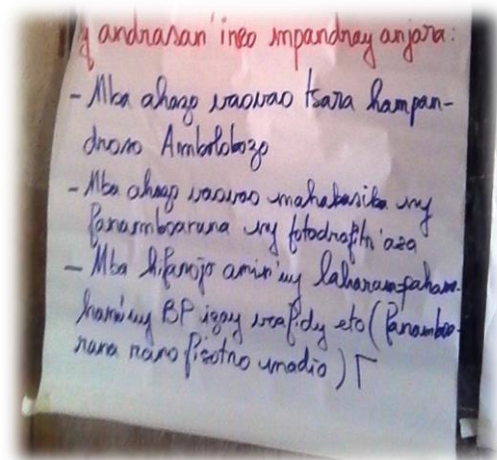 y andrasan'ireo mpandray anjara:
- Mba ahazo vaovao tsara hampan-
droso Ambolobozo
- Mba ahazo vaovao mahakasika ny
fanamboarana ny fotodrafitr'asa
- Mba hifanojo amin'ny laharampaham-
hamin'ny BP izay voafidy eto (fanamboa-
rana rano fisotro madio)